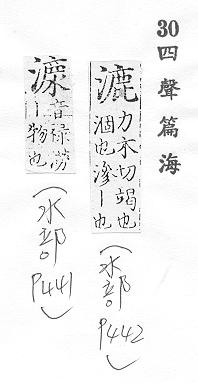 30 四聲篇海
漉 力木切竭也
涸也滲丨也
(水部 P442)
音禄
丨物也
(水部 P441)